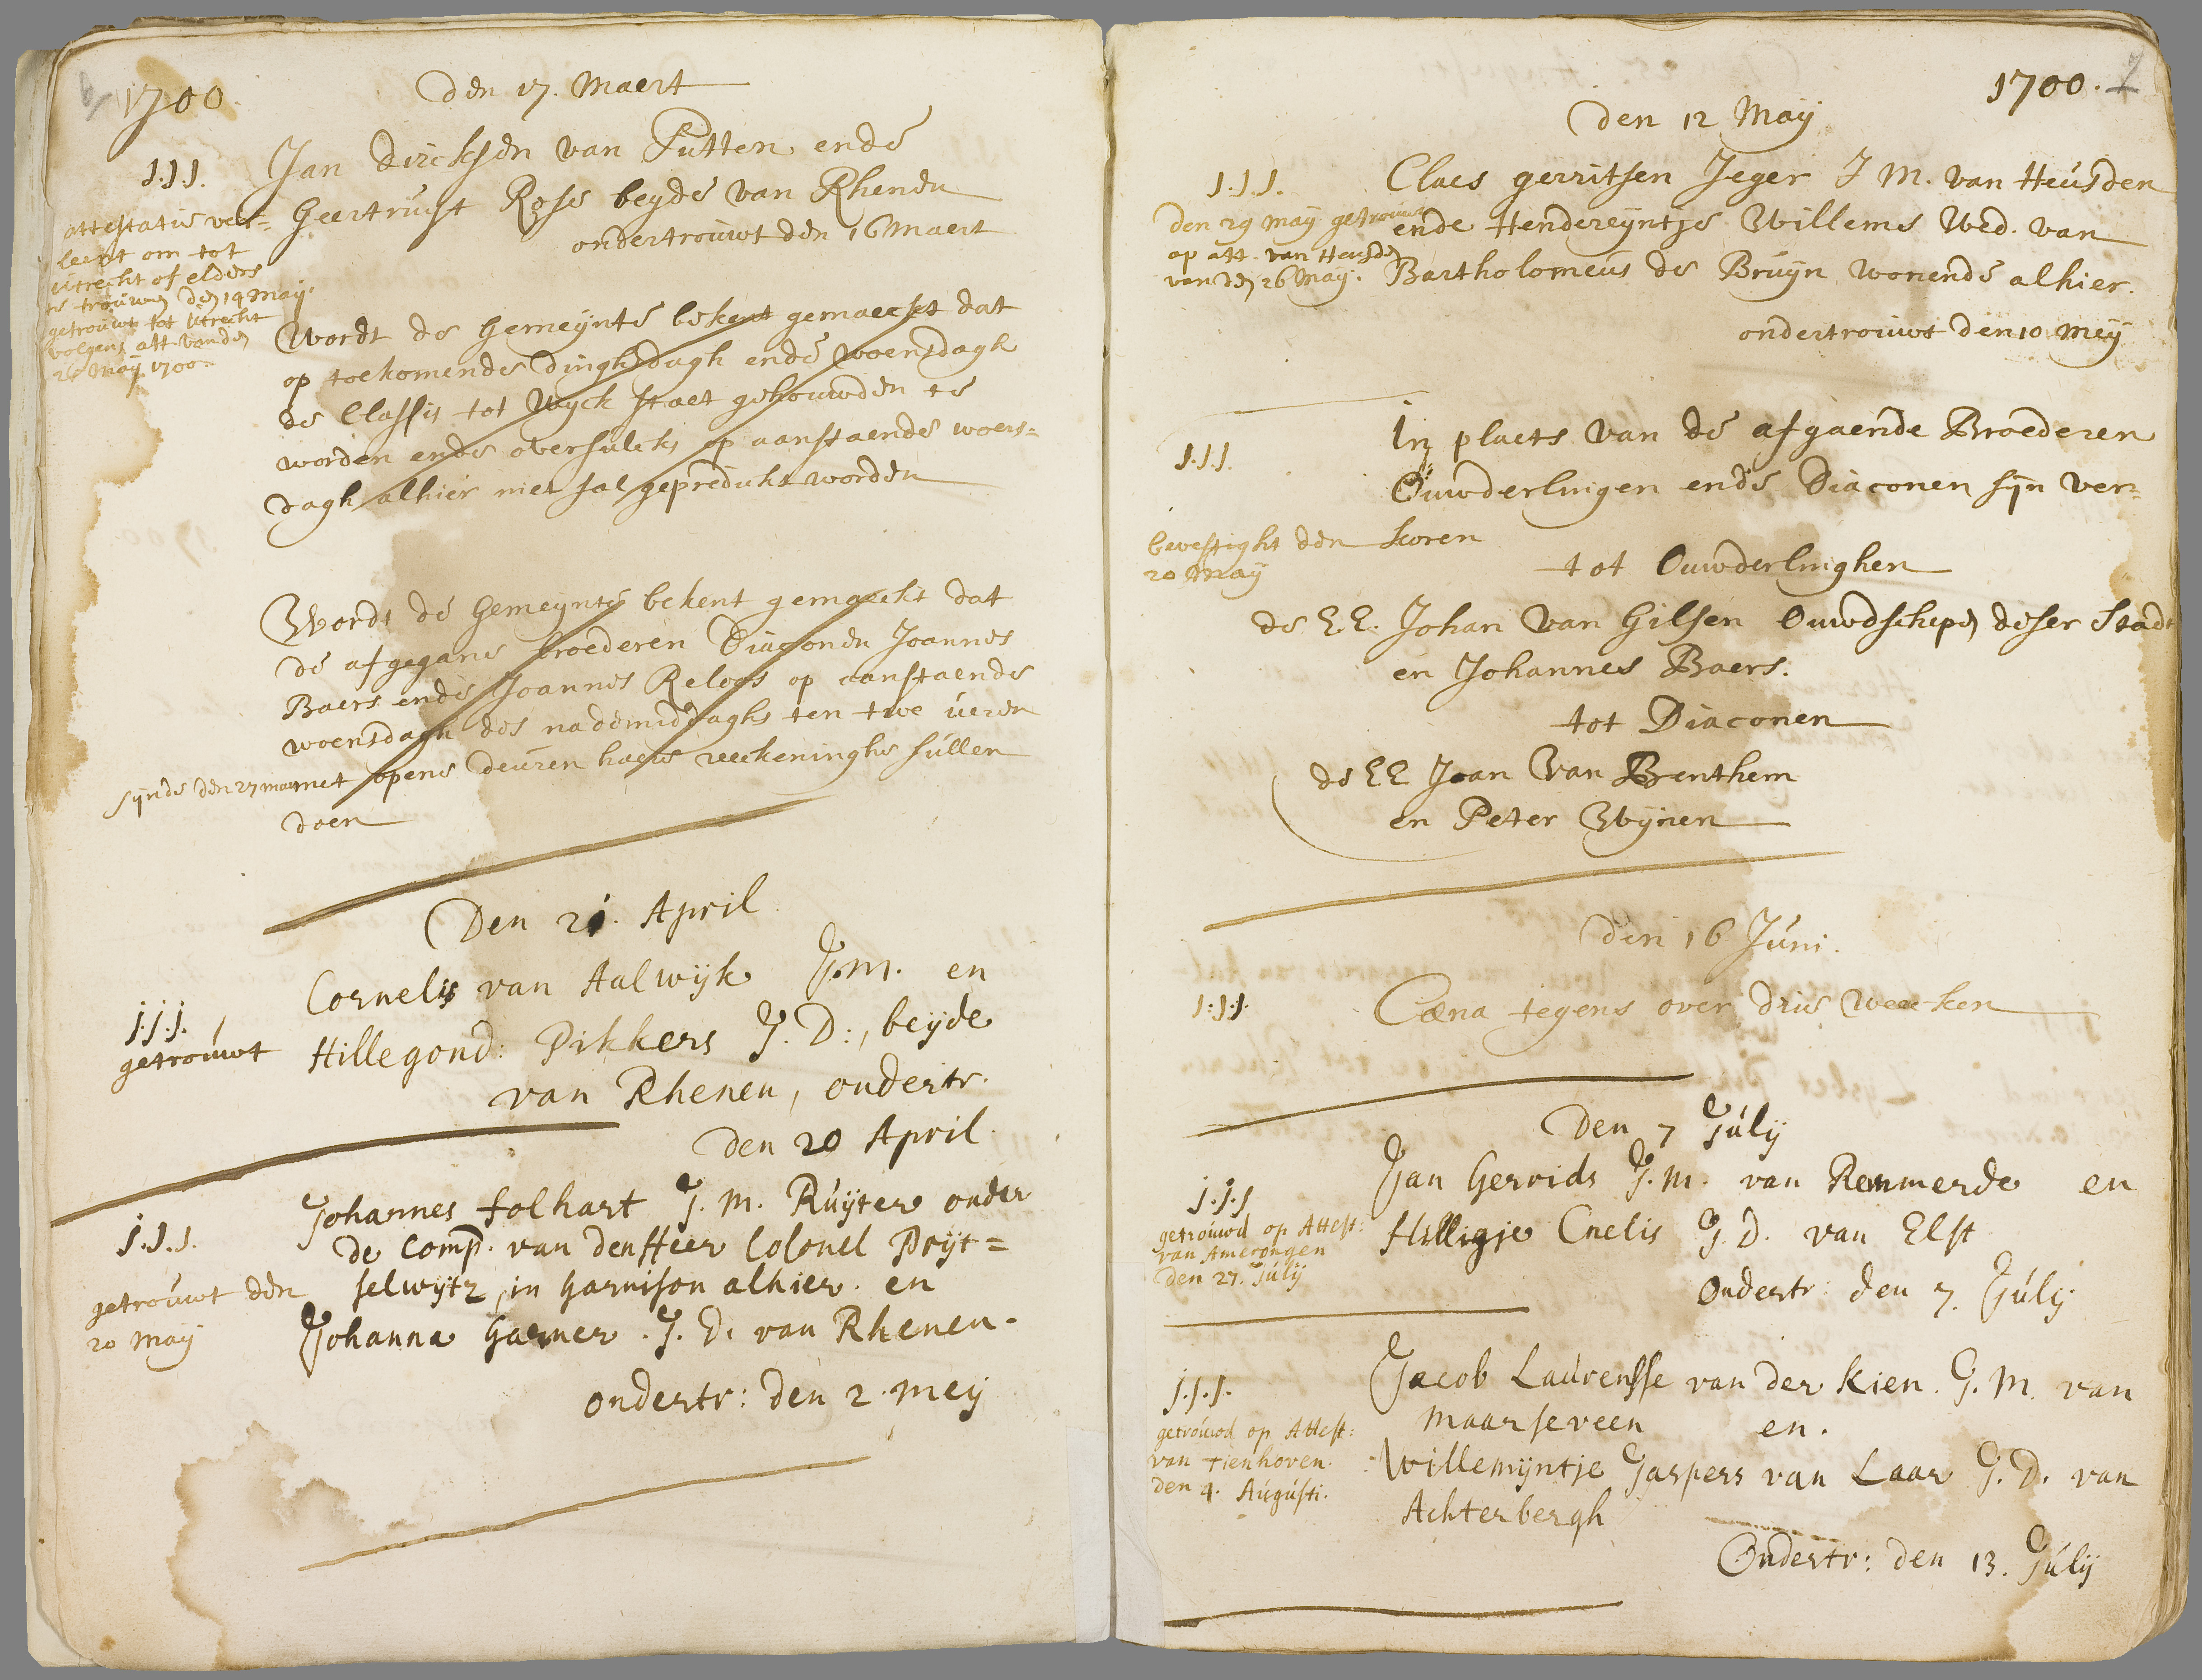 1700.
den 17. Maert
J.J.J.
Jan dircksen van Putten ende
Geertruijt Rose beyde van Rhenen
ondertrouwt den 16 Maert
attestatie ver=
leent om tot
utrecht of elders
te trouwen den 14 Maij.
getrouwt tot Utrecht
volgens att. vanden
26 Maij 1700.
Wordt de Gemeijnte bekent gemaeckt dat
op toekomende dinghsdagh ende woensdagh
de Classis tot Wyck staet gehouwden te
worden ende oversulcks op aanstaende woens=
dagh alhier niet sal gepredickt worden
Wordt de Gemeynte bekent gemaeckt dat
de afgegane broederen Diaconen Joannes
Baers ende Joannes Reloos op aanstaende
woensdagh des nademiddaghs ten twe ueren
sijnde den 27 maert
met opene deuren haere reekeninghe sullen
doen
Den 21. April
J.J.J.
getrouwt
Cornelis van Aalwijk J.M. en
Hillegond: Pikkers J.D:, beijde
van Rhenen, ondertr.
den 20 April
J.J.J.
getrouwt den
20 Maij
Johannes folhart J.M. Ruijter onder
de Comp. van den Heer Colonel Prijt=
selwijtz, in Garnison alhier. en
Johanna Garner. J.D. van Rhenen.
ondertr: den 2. Meij
1700. 7
den 12 Maij
J.J.J.
den 29 Maij getrouwt
op att. van Heusden
van den 26 Maij.
Claes gerritsen Jeger J M. van Heusden
ende Hendereyntje Willems Wed. van
Bartholomeus de Bruijn wonende alhier.
ondertrouwt den 10 Meij
J.J.J.
In plaets van de afgaende Broederen
Ouwderlingen ende Diaconen sijn ver=
koren
bevestight den
20 Maij
tot Ouwderlinghen
de E.E. Johan Van Gilsen Ouwdschepen deser Stadt
en Johannes Baers.
tot Diaconen
de EE Joan Van Brenthem
en Peter Wijnen
den 16 Juni.
J.J.J.
Cæna tegens over drie weeken
Den 7 Júlij
J.J.J
getrouwd op Attest:
van Amerongen
den 27. Júlij
Jan Gerrids J.M. van Remmerde en
Hilligje Cnelis J.D. van Elst
Ondertr: den 7. Júlij
J.J.J.
getrouwd op Attest:
van Tienhoven.
den 4. Augústi.
Jacob Laurensse van der Kien. J.M. van
Maarseveen en.
Willemijntje Jaspers van Laar J.D. van
Achterbergh
Ondertr: den 13. Júlij